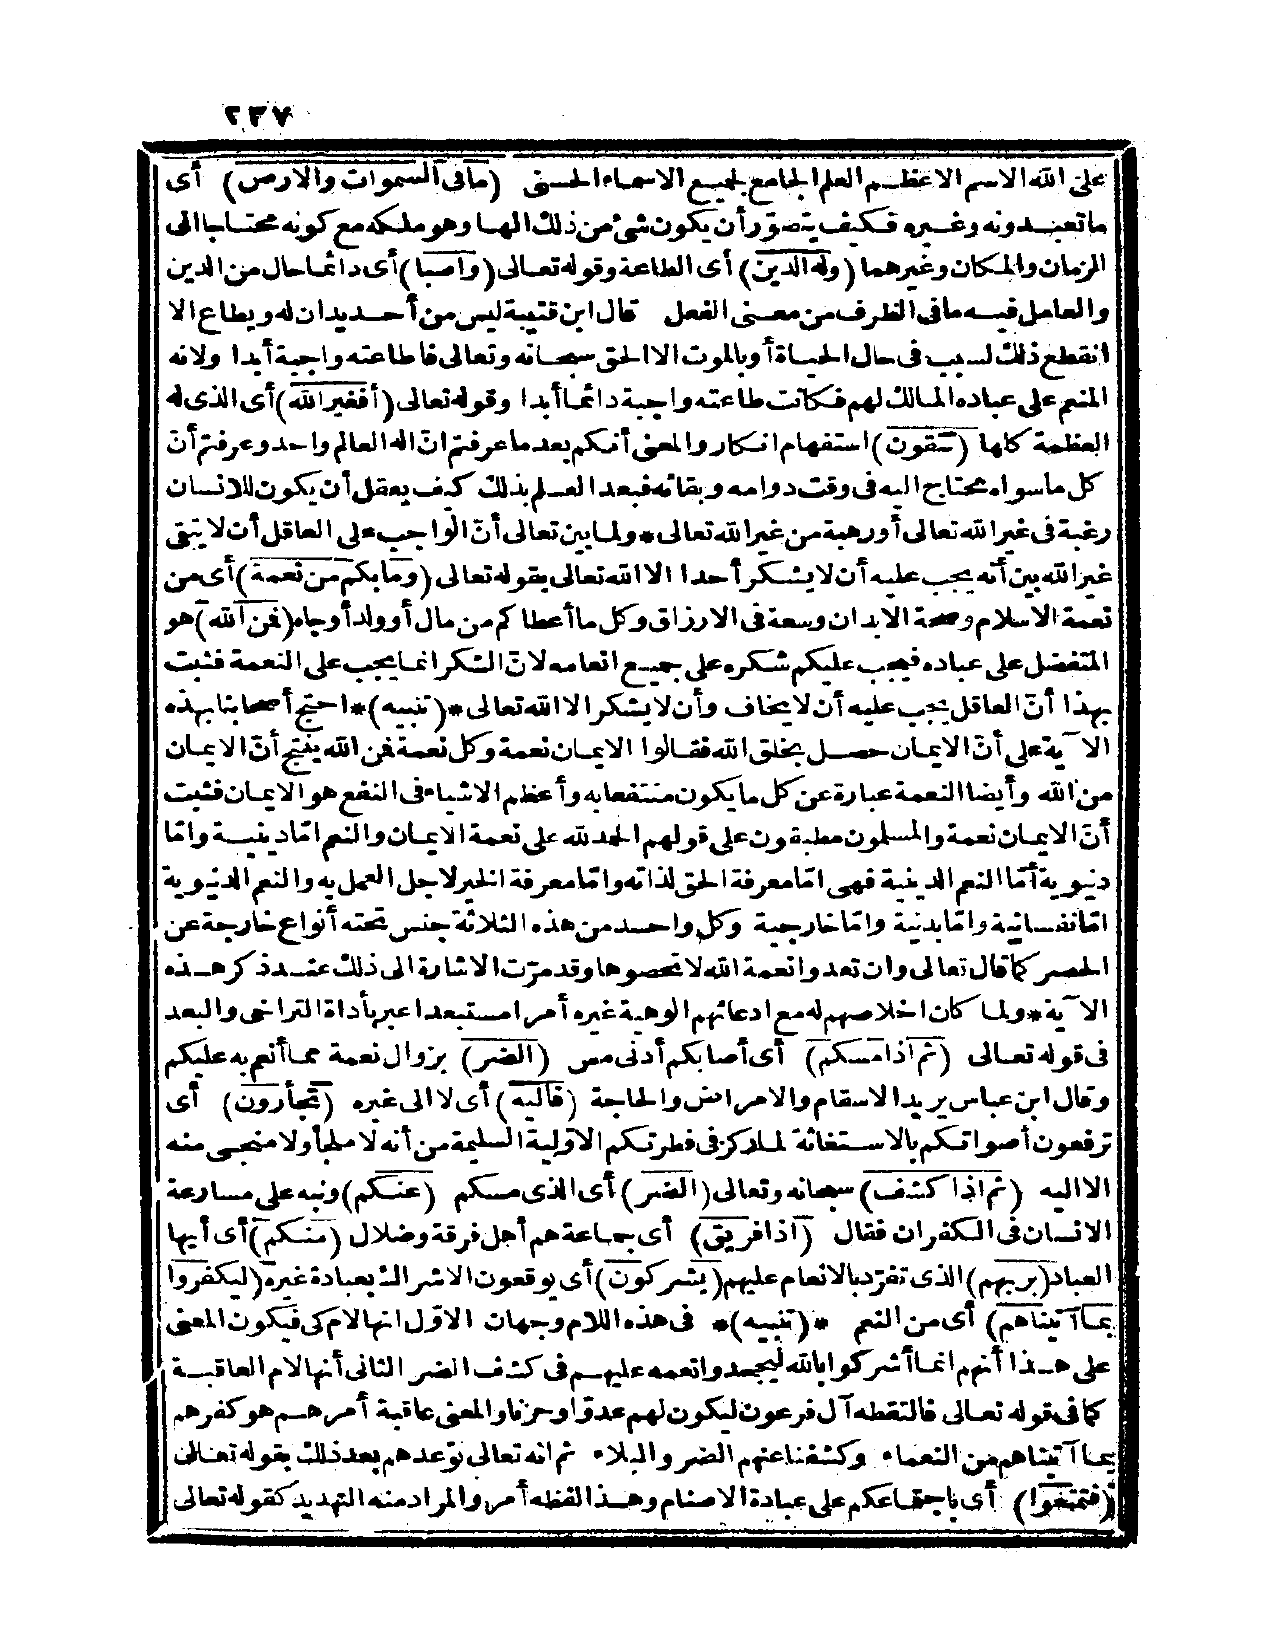 ٢٣٧
على الله الاسم الاعظم العلم الجامع لجميع الاسماء الحسنى (ما فى السموات والارض) أى
ما تعبدونه وغيره فكيف يتصوّر أن يكون شئ من ذلك الها وهو ملكه مع كونه محتاجا الى
الزمان والمكان وغيرهما (وله الدين) أى الطاعة وقوله تعالى (واصبا) أى دائما حال من الدين
والعامل فيه ما فى الظرف من معنى الفعل قال ابن قتيبة ليس من أحد يدان له ويطاع الا
انقطع ذلك لسبب فى حال الحياة أو بالموت الا الحق سبحانه وتعالى فاطاعته واجبة أبدا ولانه
المنعم على عباده المالك لهم فكانت طاعته واجبة دائما أبدا وقوله تعالى (أفغير الله) أى الذى له
العظمة كلها (تتقون) استفهام انكار والمعنى أنكم بعد ما عرفتم انّ اله العالم واحد وعرفتم أنّ
كل ما سواه محتاج اليه فى وقت دوامه وبقائه فبعد العلم بذلك كيف يعقل أن يكون للانسان
رغبة فى غير الله تعالى أو رهبة من غير الله تعالى * ولما بين تعالى أنّ الواجب على العاقل أن لا يتقى
غير الله بين أنه يجب عليه أن لا يشكر أحدا الا الله تعالى بقوله تعالى (وما بكم من نعمة) أى من
نعمة الاسلام وصحة الابدان وسعة فى الارزاق وكل ما أعطاكم من مال أو ولد أو جاه (فمن الله) هو
المتفضل على عباده فيجب عليكم شكره على جميع انعامه لانّ الشكر انما يجب على النعمة فثبت
بهذا أنّ العاقل يجب عليه أن لا يخاف وأن لا يشكر الا الله تعالى * (تنبيه) * احتج أصحابنا بهذه
الآية على أنّ الايمان حصل بخلق الله فقالوا الايمان نعمة وكل نعمة فمن الله ينتج أنّ الايمان
من الله وأيضا النعمة عبارة عن كل ما يكون منتفعا به وأعظم الاشياء فى النفع هو الايمان فثبت
أنّ الايمان نعمة والمسلمون مطبقون على قولهم الحمد لله على نعمة الايمان والنعم امّا دينية وامّا
دنيوية أمّا النعم الدينية فهى امّا معرفة الحق لذاته وامّا معرفة الخير لاجل العمل به والنعم الدنيوية
امّا نفسانية وامّا بدنية وامّا خارجية وكل واحد من هذه الثلاثة جنس تحته أنواع خارجة عن
الحصر كما قال تعالى وان تعدوا نعمة الله لا تحصوها وقد مرّت الاشارة الى ذلك عند ذكر هذه
الآية * ولما كان اخلاصهم له مع ادعائهم الوهية غيره أمرا مستبعدا عبر بأداة التراخى والبعد
فى قوله تعالى (ثم اذا مسكم) أى أصابكم أدنى مس (الضر) بزوال نعمة مما أنعم به عليكم
وقال ابن عباس يريد الاسقام والامراض والحاجة (فاليه) أى لا الى غيره (تجأرون) أى
ترفعون أصواتكم بالاستغاثة لما ركز فى فطرتكم الاوّلية السليمة من أنه لا ملجأ ولا منجى منه
الا اليه (ثم اذا كشف) سبحانه وتعالى (الضر) أى الذى مسكم (عنكم) ونبه على مسارعة
الانسان فى الكفران فقال (اذا فريق) أى جماعة هم أهل فرقة وضلال (منكم) أى أيها
العباد (بربهم) الذى تفرّد بالانعام عليهم (يشركون) أى يوقعون الاشراك بعبادة غيره (ليكفروا
بما آتيناهم) أى من النعم * (تنبيه) * فى هذه اللام وجهان الاوّل انها لام كى فيكون المعنى
على هذا أنهم انما أشركوا بالله ليجحدوا نعمه عليهم فى كشف الضر الثانى أنها لام العاقبة
كما فى قوله تعالى فالتقطه آل فرعون ليكون لهم عدوّا وحزنا والمعنى عاقبة أمرهم هو كفرهم
بما آتيناهم من النعماء وكشفنا عنهم الضر والبلاء ثم انه تعالى توّعدهم بعد ذلك بقوله تعالى
(فتمتعوا) أى باجتماعكم على عبادة الاصنام وهذا لفظه أمر والمراد منه التهديد كقوله تعالى